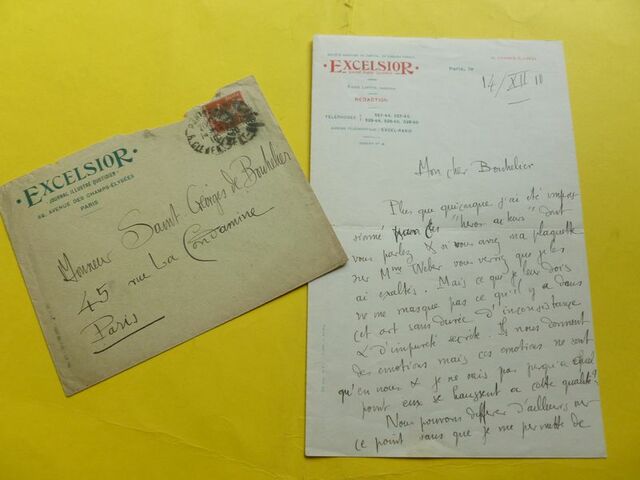 EXCELSIOR
JOURNAL ILLUSTRÉ QUOTIDIEN
88, AVENUE DES CHAMPS-ÉLYSÉES
PARIS
Monsieur Saint Georges de Bouhelier
45 rue La Condamine
Paris
EXCELSIOR
Paris, le
14/XII 10
RÉDACTION
TÉLÉPHONES
EXCEL-PARIS
Mon cher Bouhelier
Plus que quiconque j'ai été impres-
sionné par ces "héros acteurs" dont
vous parlez & si vous avez ma plaquette
sur Mme Weber vous verrez que je les
ai exaltés. Mais ce que je leur dois
ne me masque pas ce qu'il y a dans
cet art sans durée d'inconsistance
& d'impureté secrète. Ils nous donnent
des émotions mais ces émotions ne sont
qu'en nous & je ne sais pas jusqu'à quel
point eux se haussent à cette qualité?
Nous pouvons différer d'ailleurs sur
ce point sans que je me permette de